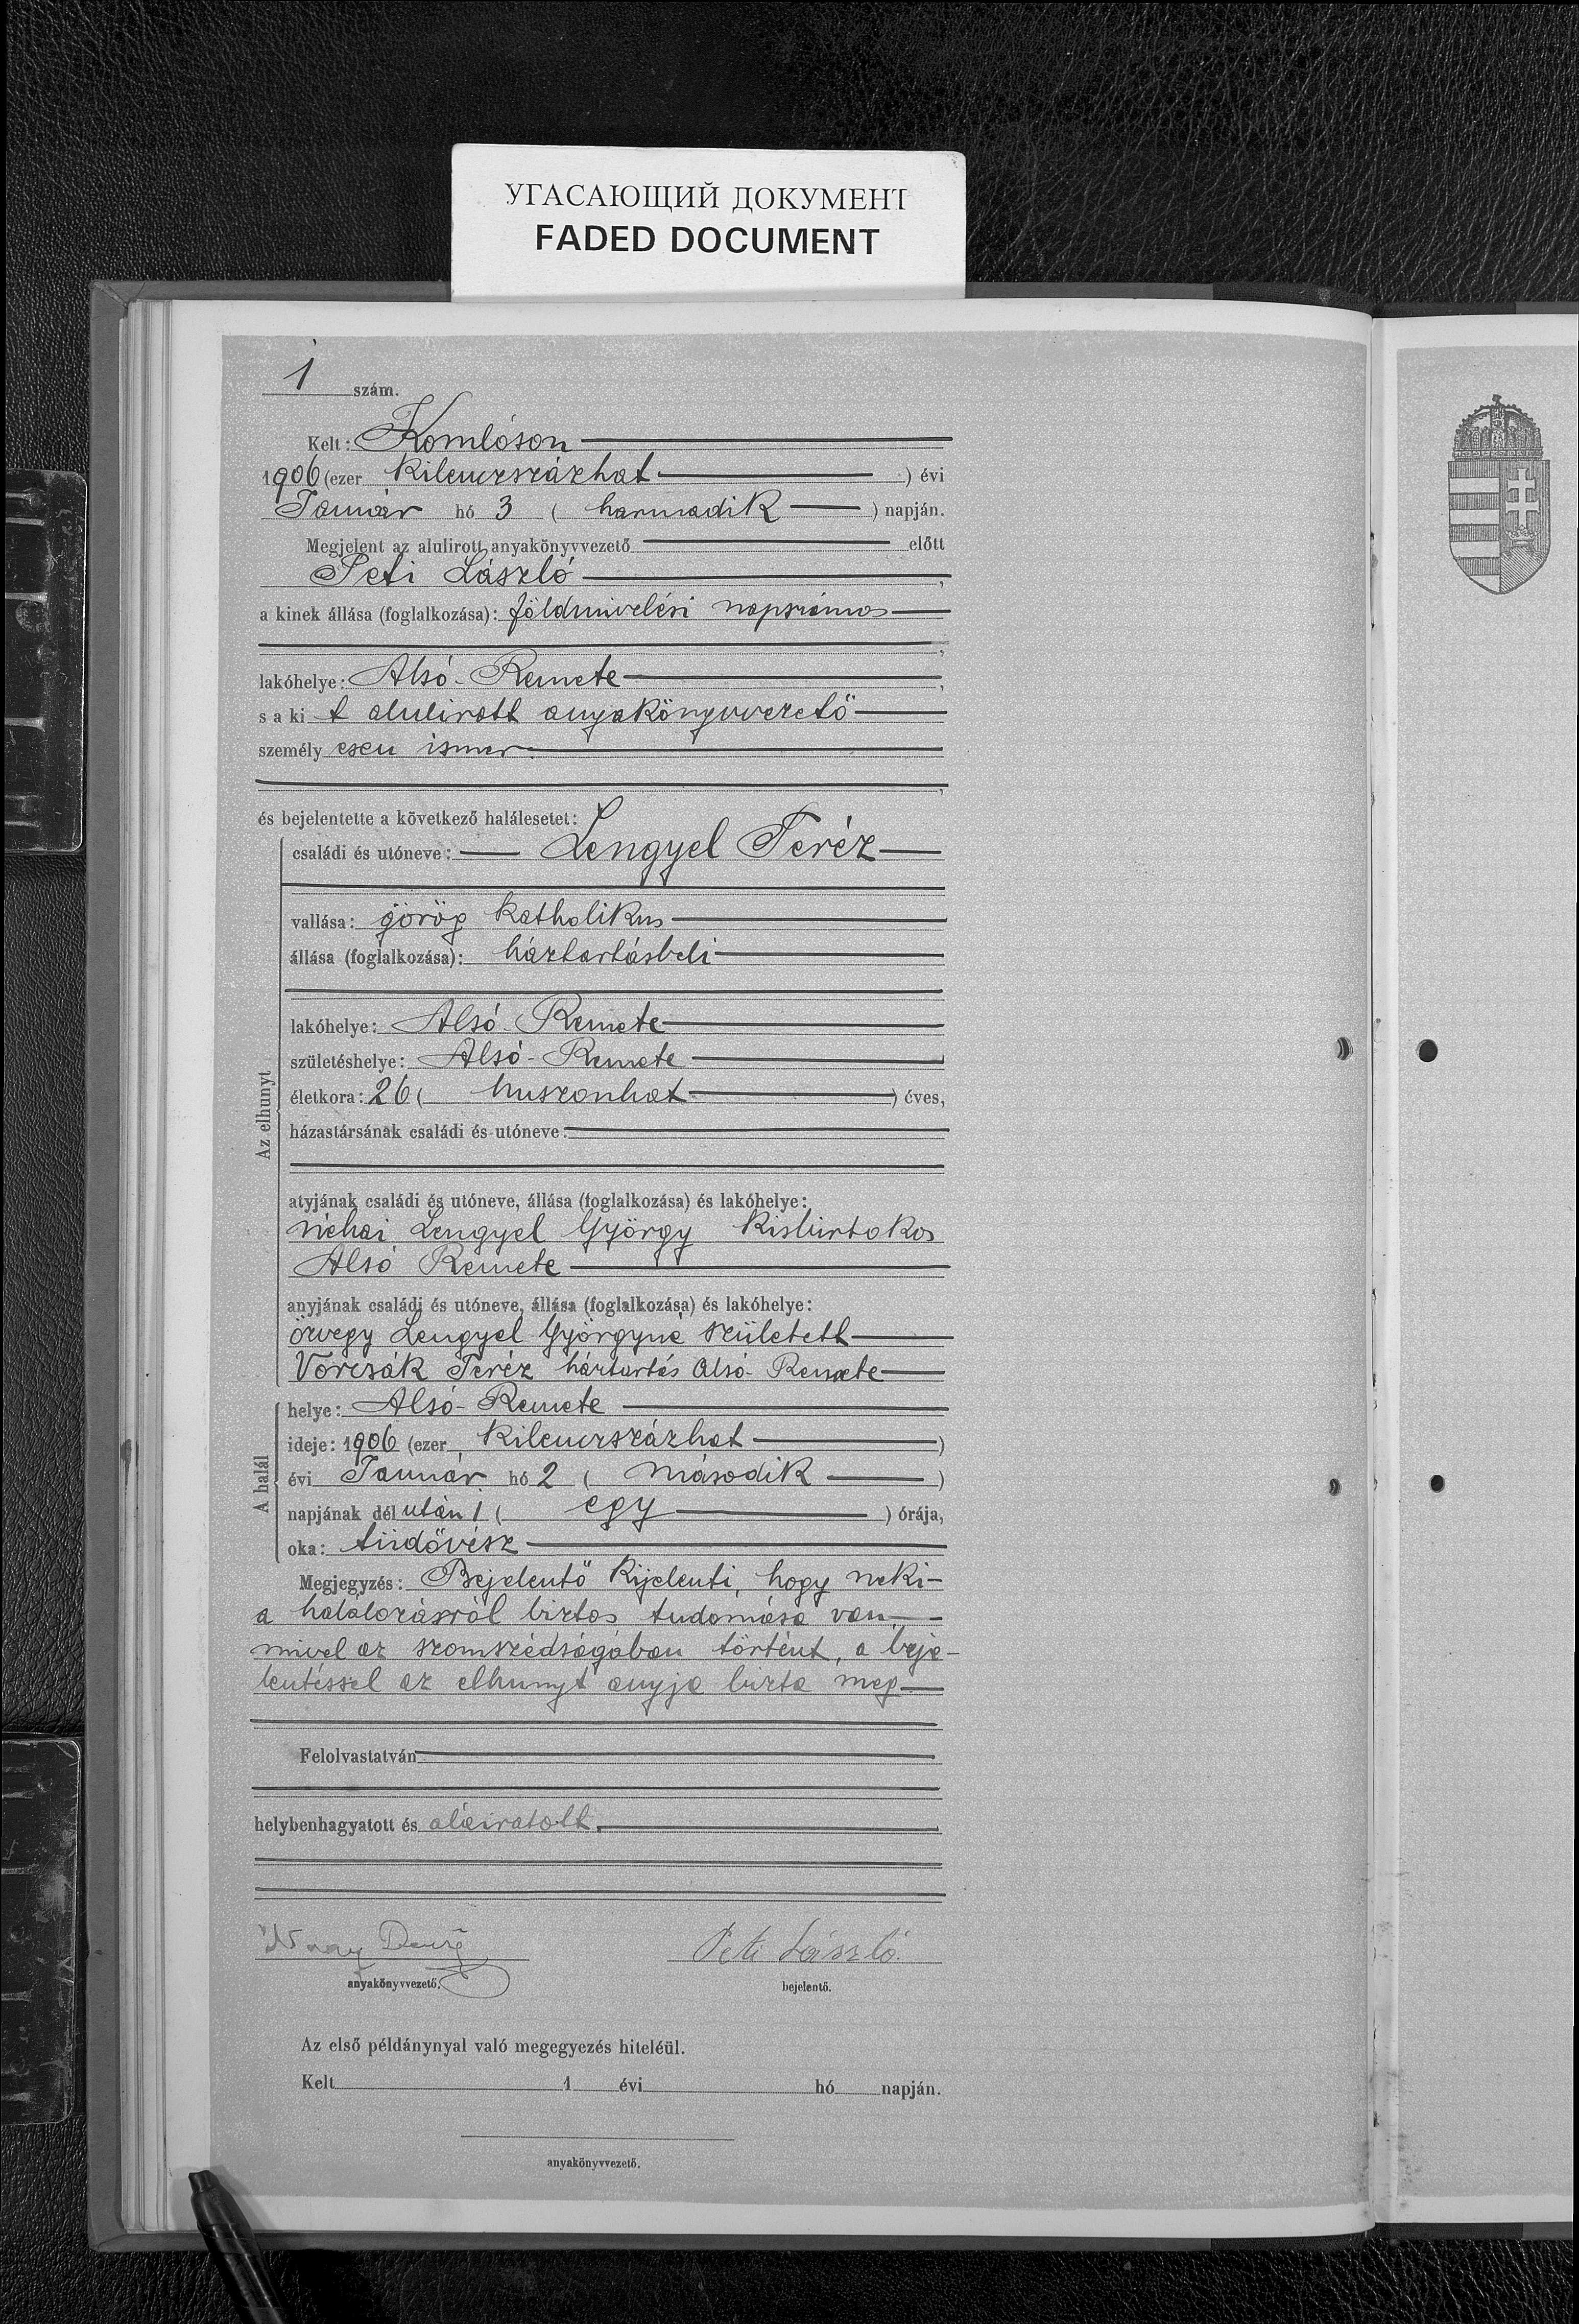 УГАСАЮЩИЙ ДОКУМЕНТ
FADED DOCUMENT
1 szám.
Kelt: Komlóson
1906 (ezer kilenczszázhat ) évi
Január hó 3 ( harmadik ) napján.
Megjelent az alulirott anyakönyvvezető előtt
Peti László ,
a kinek állása (foglalkozása): földmivelési napszámos
,
lakóhelye: Alsó-Remete ,
s a ki t alulirott anyakönyvvezető
személy esen ismer
,
és bejelentette a következő halálesetet:
családi és utóneve: Lengyel Teréz
vallása: görög katholikus
állása (foglalkozása): háztartásbeli
lakóhelye: Alsó-Remete
születéshelye: Alsó-Remete
életkora: 26 ( huszonhat ) éves,
házastársának családi és utóneve:
Az elhunyt
atyjának családi és utóneve, állása (foglalkozása) és lakóhelye:
néhai Lengyel György kisbirtokos
Alsó Remete
anyjának családi és utóneve, állása (foglalkozása) és lakóhelye:
özvegy Lengyel Györgyné született
Vorczák Teréz háztartás Alsó-Remete
helye: Alsó-Remete
ideje: 1906 (ezer kilenczszázhat )
évi Január hó 2 ( második )
A halál
napjának dél után 1 ( egy ) órája,
oka: tüdővész
Megjegyzés: Bejelentő kijelenti, hogy neki
a halálozásról biztos tudomása van
mivel az szomszédságában történt, a beje-
lentéssel az elhunyt anyja bizta meg
Felolvastatván
helybenhagyatott és aláiratott.
Nagy Peti László
anyakönyvvezető. bejelentő.
Az első példánynyal való megegyezés hiteléül.
Kelt 1 évi hó napján.
anyakönyvvezető.